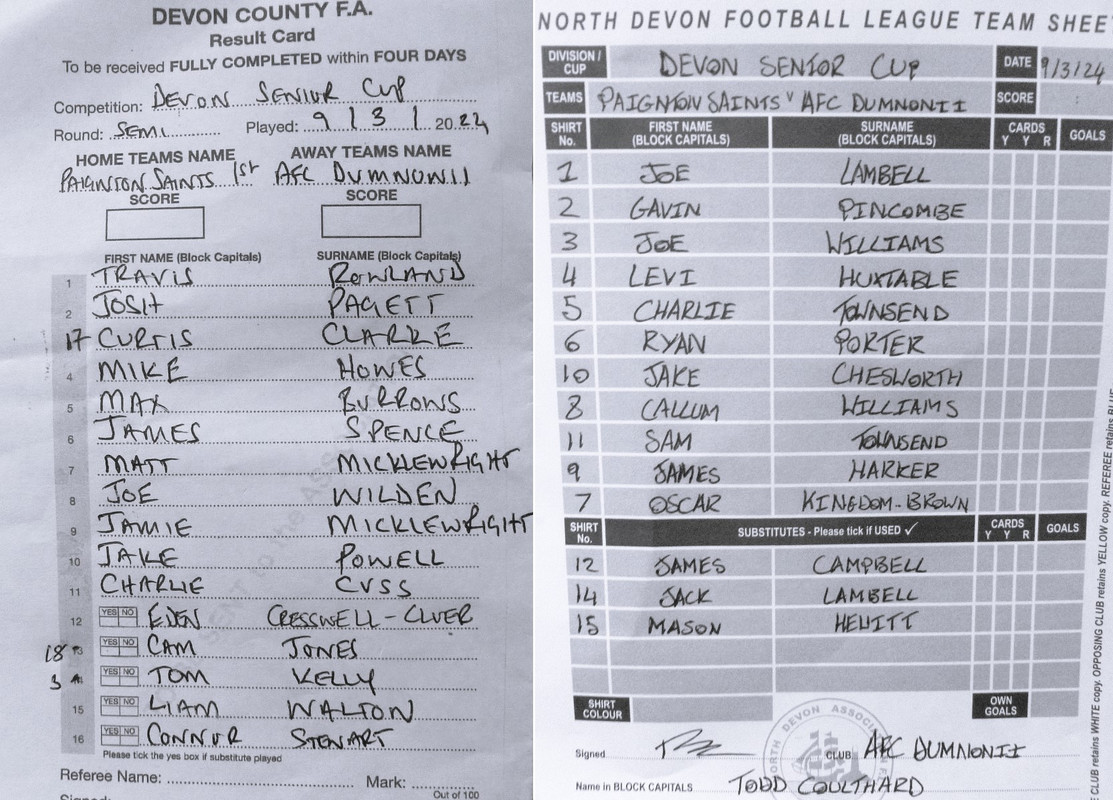 DEVON COUNTY F.A.
Result Card
To be received FULLY COMPLETED within FOUR DAYS
Competition: DEVON SENIOR CUP
Round: SEMI Played: 9 / 3 / 2024
HOME TEAMS NAME AWAY TEAMS NAME
PAIGNTON SAINTS 1st AFC DUMNONII
SCORE SCORE
FIRST NAME (Block Capitals) SURNAME (Block Capitals)
1 TRAVIS ROWLAND
2 JOSH PAGETT
17 CURTIS CLARKE
4 MIKE HOWES
5 MAX BURROWS
6 JAMES SPENCE
7 MATT MICKLEWRIGHT
8 JOE WILDEN
9 JAMIE MICKLEWRIGHT
10 JAKE POWELL
11 CHARLIE CUSS
12 YES NO EDEN CRESSWELL-CLVER
18 YES NO CAM JONES
3 YES NO TOM KELLY
15 YES NO LIAM WALTON
16 YES NO CONNOR STEWART
Please tick the yes box if substitute played
Referee Name: Mark:
Out of 100
NORTH DEVON FOOTBALL LEAGUE TEAM SHEET
DIVISION / CUP DEVON SENIOR CUP DATE 9/3/24
TEAMS PAIGNTON SAINTS V AFC DUMNONII SCORE :
SHIRT No. FIRST NAME (BLOCK CAPITALS) SURNAME (BLOCK CAPITALS) CARDS Y Y R GOALS
1 JOE LAMBELL
2 GAVIN PINCOMBE
3 JOE WILLIAMS
4 LEVI HUXTABLE
5 CHARLIE TOWNSEND
6 RYAN PORTER
10 JAKE CHESWORTH
8 CALLUM WILLIAMS
11 SAM TOWNSEND
9 JAMES HARKER
7 OSCAR KINGDOM-BROWN
SHIRT No. SUBSTITUTES - Please tick if USED ✓ CARDS Y Y R GOALS
12 JAMES CAMPBELL
14 JACK LAMBELL
15 MASON HEWITT
SHIRT COLOUR OWN GOALS
Signed CLUB AFC DUMNONII
Name in BLOCK CAPITALS TODD COULTHARD
NORTH DEVON ASSOC
CLUB retains WHITE copy. OPPOSING CLUB retains YELLOW copy. REFEREE retains BLUE